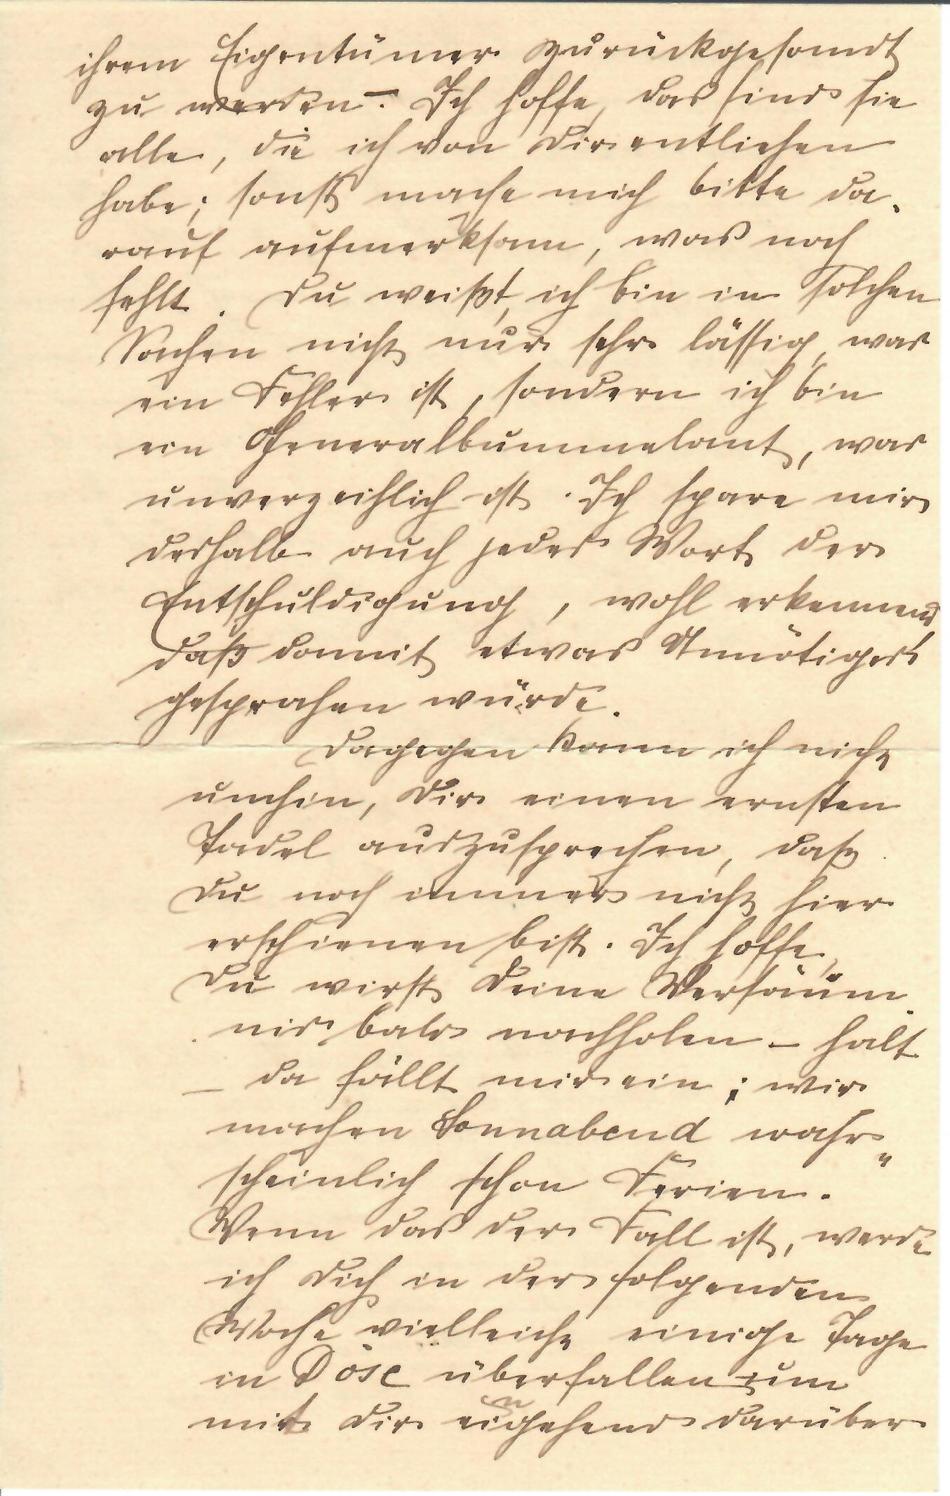 ihrem Eigentümer zurückgesandt
zu werden. – Ich hoffe, das sind sie
alle, die ich von Dir entliehen
habe; sonst mache mich bitte da-
rauf aufmerksam, was noch
fehlt. Du weißt, ich bin in solchen
Sachen nicht nur sehr lässig, was
ein Fehler ist, sondern ich bin
ein Generalbummelant, was
unverzeihlich ist. Ich spare mir
deshalb auch jedes Wort der
Entschuldigung, wohl erkennend
daß damit etwas Unnötiges
gesprochen würde.
Dagegen kann ich nicht
umhin, Dir einen ernsten
Tadel auszusprechen, daß
Du noch immer nicht hier
erschienen bist. Ich hoffe,
Du wirst Deine Versäum-
nis bald nachholen – halt
– da fällt mir ein; wir
machen Sonnabend wahr-
scheinlich schon Ferien.
Wenn das der Fall ist, werde
ich Dich in der folgenden
Woche vielleicht einige Tage
in Döse überfallen um
mit Dir eingehend darüber